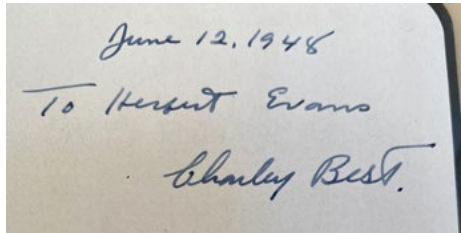 June 12, 1948
To Herbert Evans
Charley Best.